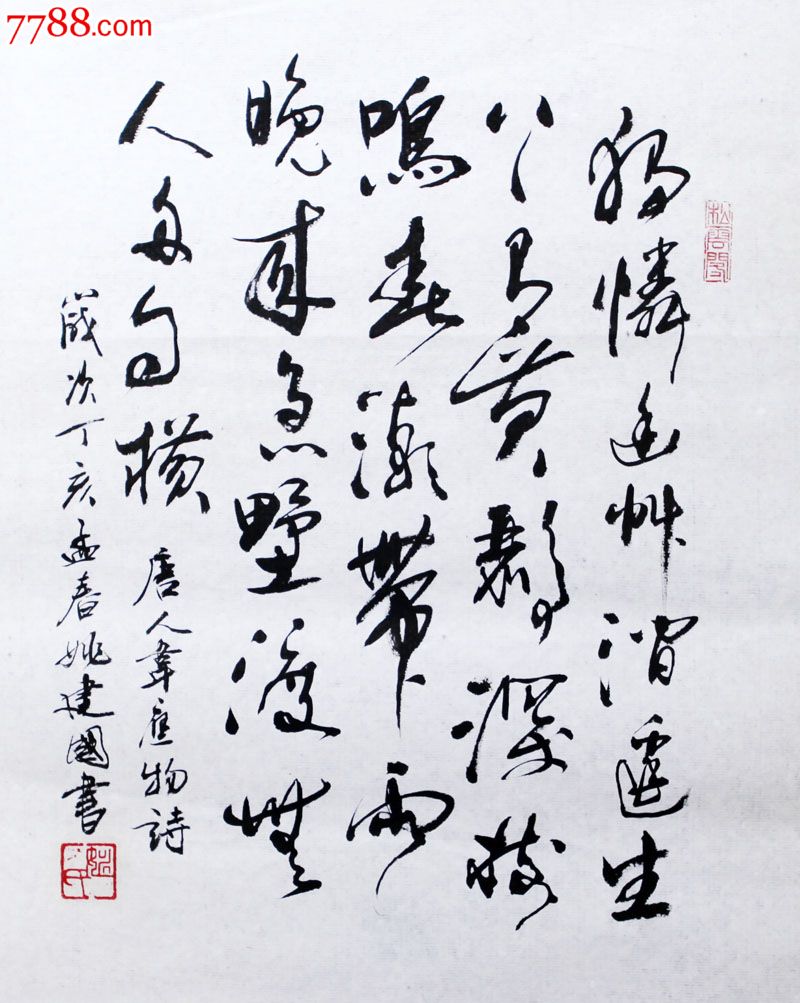 7788.com
松雲閣
獨憐幽艸澗邊生
上有黃鸝深樹
鳴春潮帶雨
晚來急野渡無
人舟自橫
唐人韋應物詩
歲次丁亥孟春姚建國書